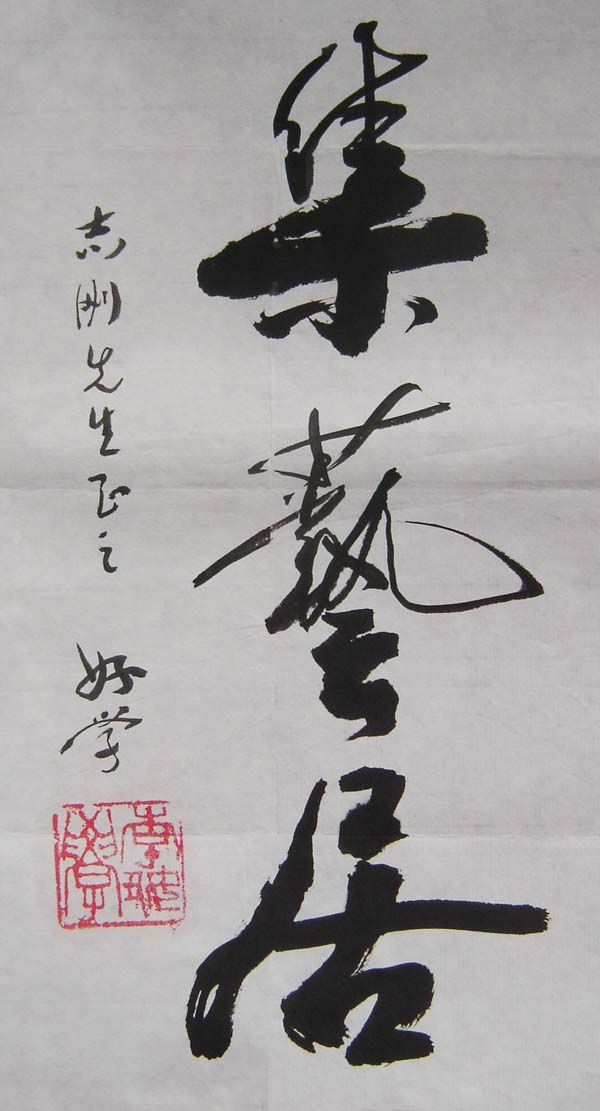 集藝居
志刚先生正之
好学